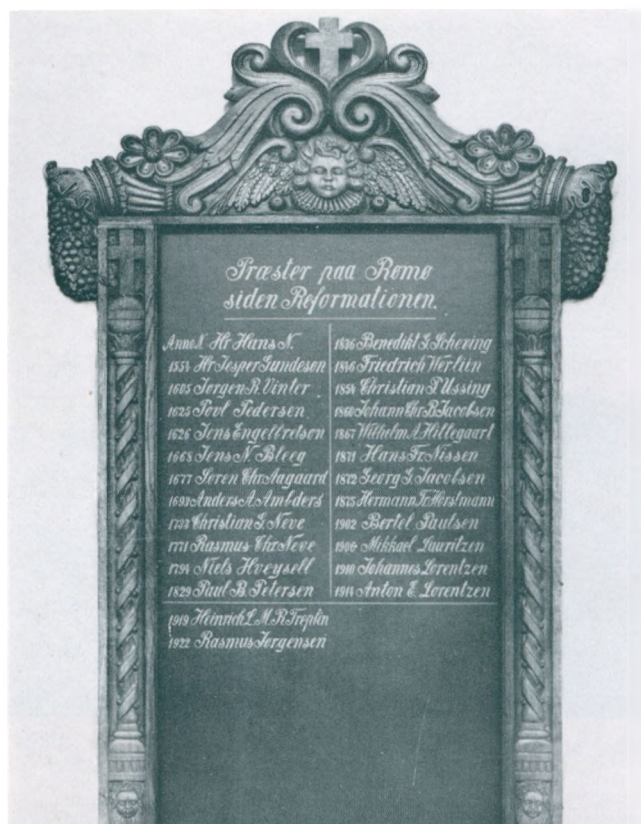 Præster paa Rømø
siden Reformationen.
Anno N. Hr Hans N.
1554 Hr Jesper Gundesen
1605 Jørgen R. Vinter
1625 Povl Pedersen
1626 Jens Engelbretson
1668 Jens N. Bleeg
1677 Søren Chr. Aagaard
1693 Anders A. Ambders
1733 Christian G. Neve
1771 Rasmus Chr. Neve
1794 Niels Hveysell
1829 Paul B. Petersen
1836 Benedikt G. Schering
1846 Friedrich Werliin
1854 Christian P. Ussing
1860 Johann Chr. B. Jacobsen
1867 Wilhelm A. Hillegaart
1871 Hans Fr. Nissen
1872 Georg G. Jacobsen
1875 Hermann Fr. Horstmann
1902 Bertel Paulsen
1906 Mikkael Lauritzen
1910 Johannes Lorentzen
1914 Anton E. Lorentzen
1919 Heinrich L. M. R. Treplin
1922 Rasmus Jørgensen